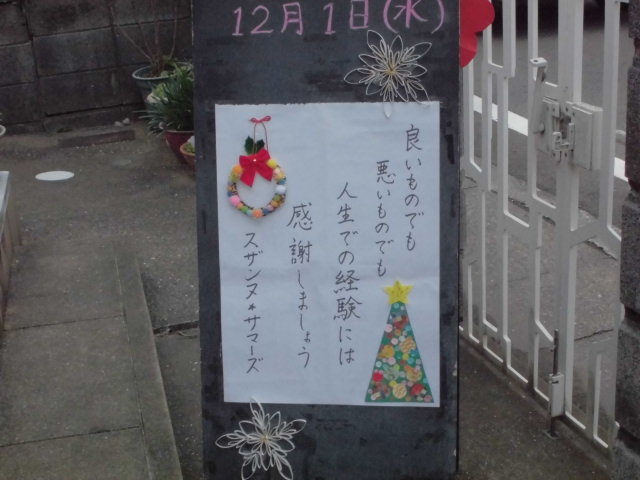 12月1日(水)
良いものでも
悪いものでも
人生での経験には
感謝しましょう
スザンヌ*サマーズ